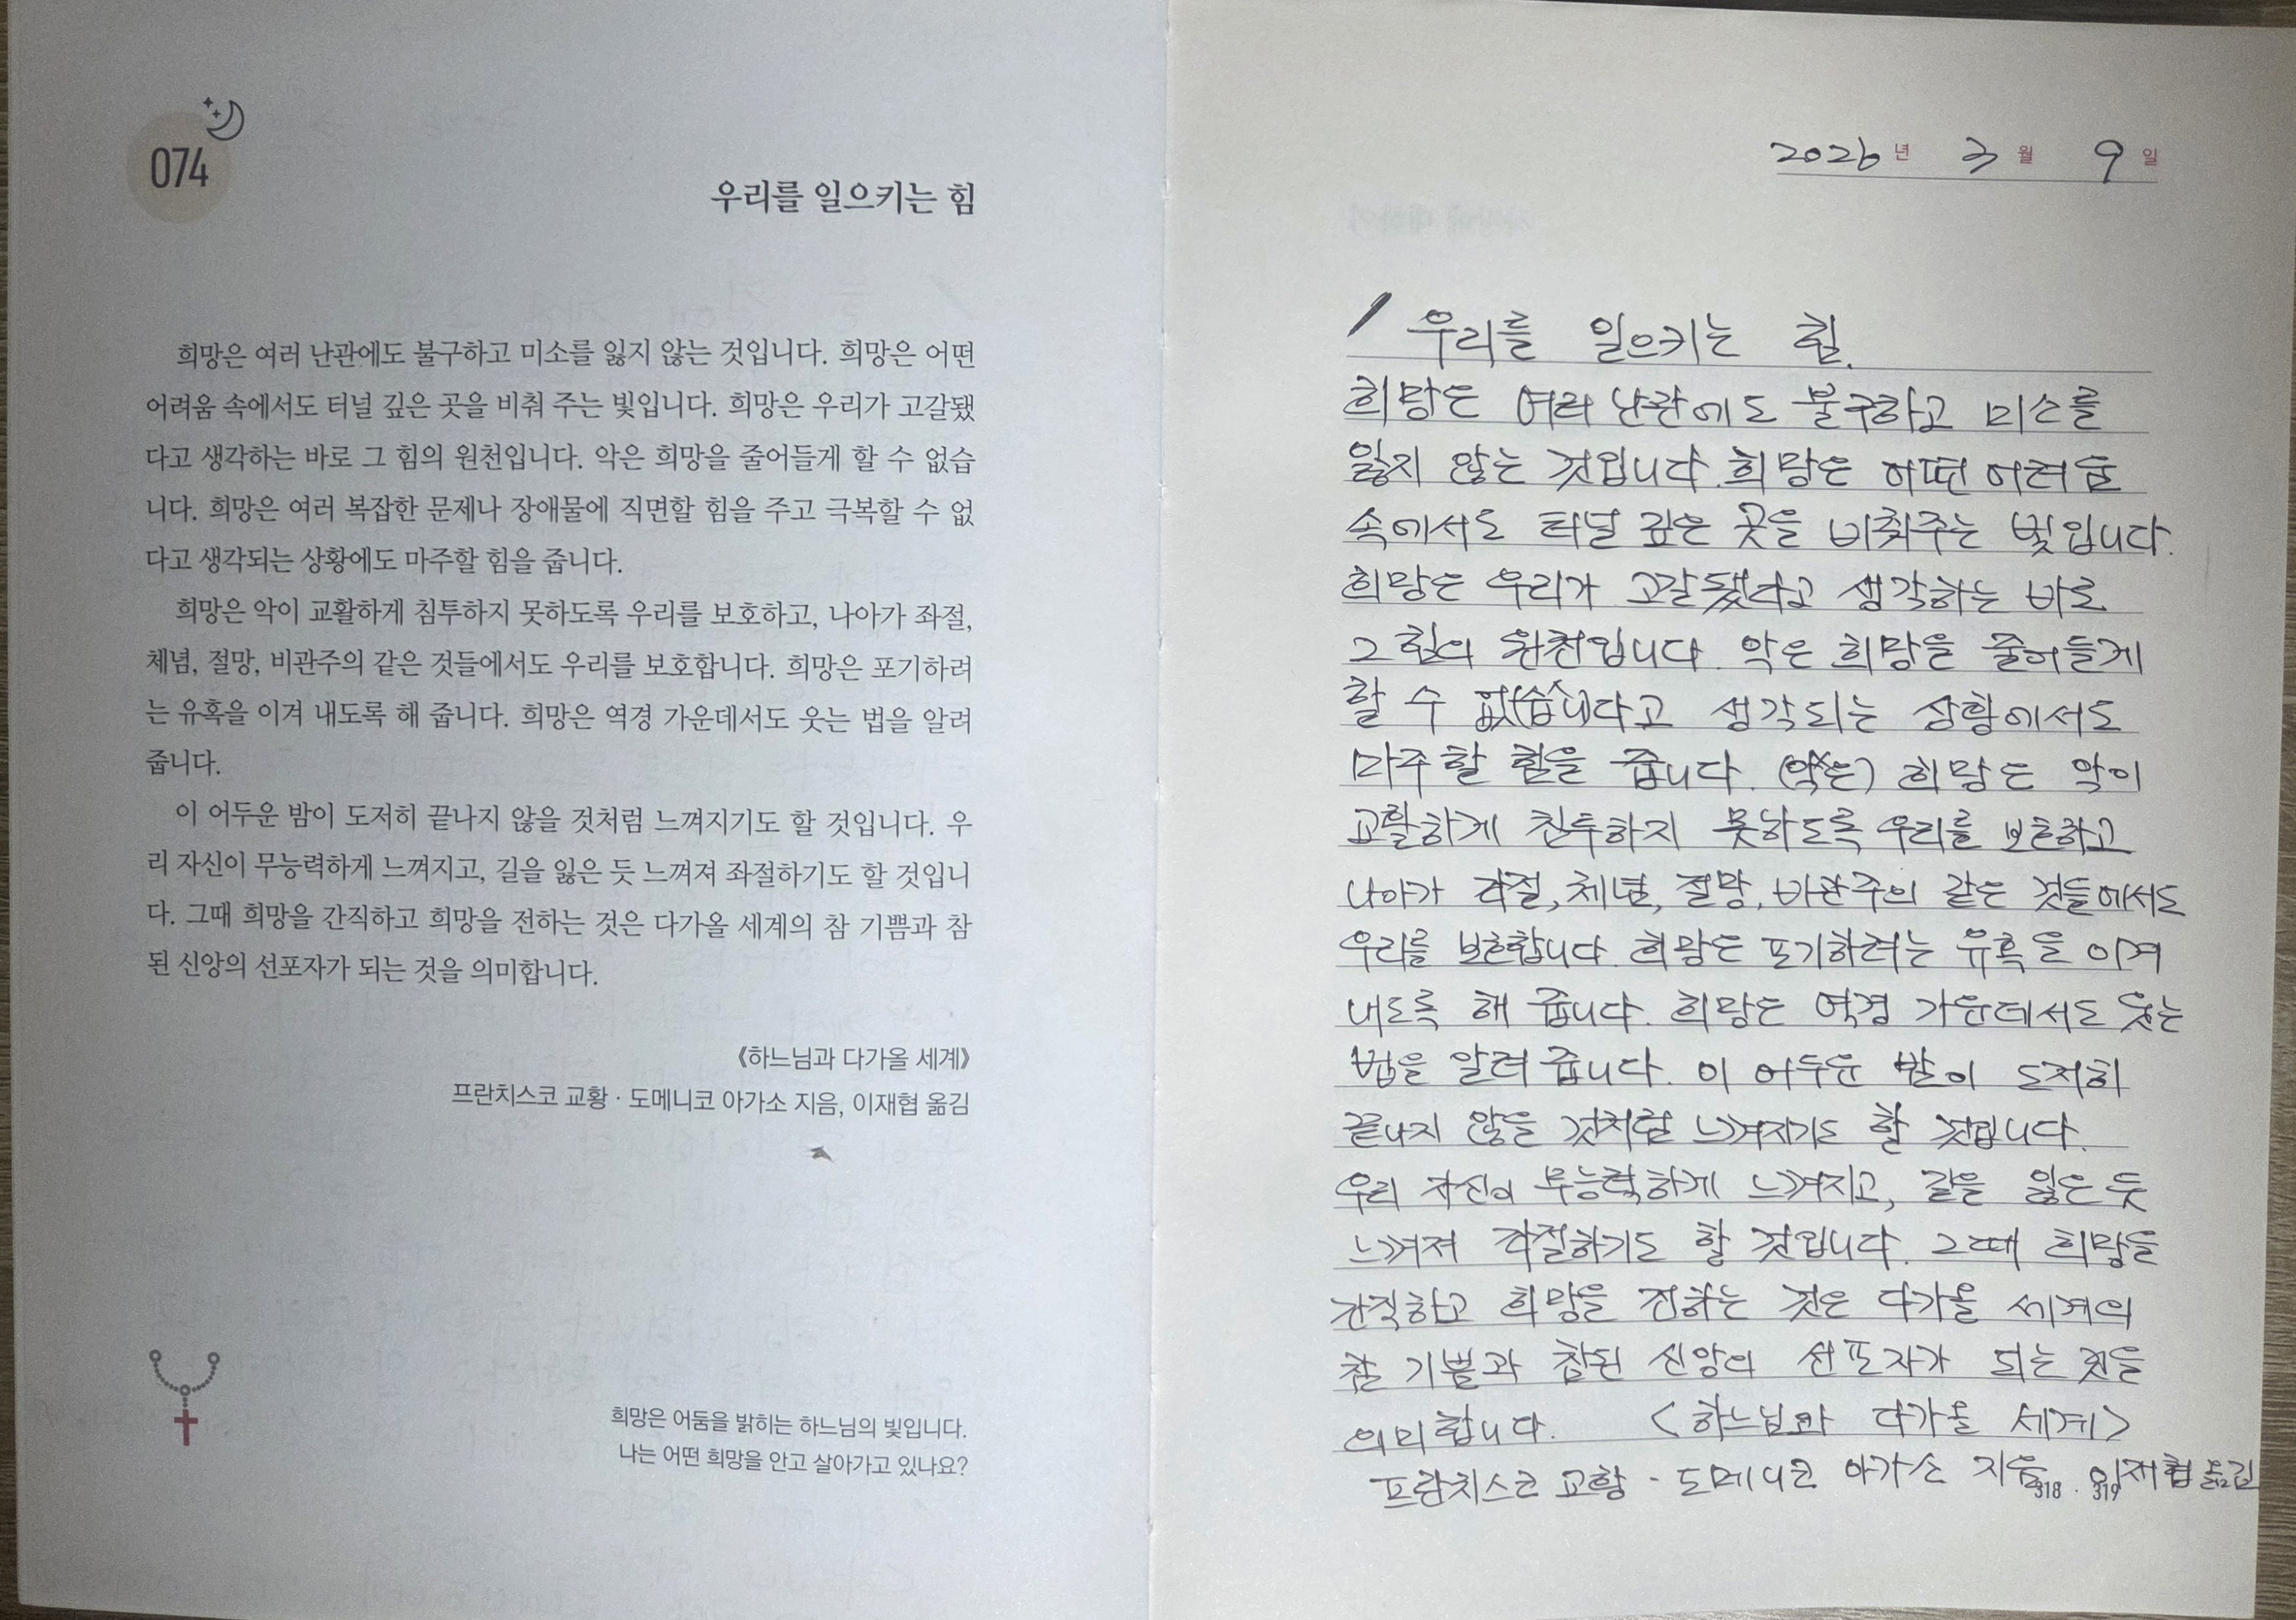 074
우리를 일으키는 힘
희망은 여러 난관에도 불구하고 미소를 잃지 않는 것입니다. 희망은 어떤
어려움 속에서도 터널 깊은 곳을 비춰 주는 빛입니다. 희망은 우리가 고갈됐
다고 생각하는 바로 그 힘의 원천입니다. 악은 희망을 줄어들게 할 수 없습
니다. 희망은 여러 복잡한 문제나 장애물에 직면할 힘을 주고 극복할 수 없
다고 생각되는 상황에도 마주할 힘을 줍니다.
희망은 악이 교활하게 침투하지 못하도록 우리를 보호하고, 나아가 좌절,
체념, 절망, 비관주의 같은 것들에서도 우리를 보호합니다. 희망은 포기하려
는 유혹을 이겨 내도록 해 줍니다. 희망은 역경 가운데서도 웃는 법을 알려
줍니다.
이 어두운 밤이 도저히 끝나지 않을 것처럼 느껴지기도 할 것입니다. 우
리 자신이 무능력하게 느껴지고, 길을 잃은 듯 느껴져 좌절하기도 할 것입니
다. 그때 희망을 간직하고 희망을 전하는 것은 다가올 세계의 참 기쁨과 참
된 신앙의 선포자가 되는 것을 의미합니다.
《하느님과 다가올 세계》
프란치스코 교황 · 도메니코 아가소 지음, 이재협 옮김
희망은 어둠을 밝히는 하느님의 빛입니다.
나는 어떤 희망을 안고 살아가고 있나요?
2026년 3월 9일
우리를 일으키는 힘.
희망은 여러 난관에도 불구하고 미소를
잃지 않는 것입니다. 희망은 어떤 어려움
속에서도 터널 깊은 곳을 비춰주는 빛입니다.
희망은 우리가 고갈됐다고 생각하는 바로
그 힘의 원천입니다. 악은 희망을 줄어들게
할 수 없(습니)다고 생각되는 상황에서도
마주할 힘을 줍니다. (악은) 희망은 악이
교활하게 침투하지 못하도록 우리를 보호하고
나아가 좌절, 체념, 절망, 비관주의 같은 것들에서도
우리를 보호합니다. 희망은 포기하려는 유혹을 이겨
내도록 해 줍니다. 희망은 역경 가운데서도 웃는
법을 알려 줍니다. 이 어두운 밤이 도저히
끝나지 않을 것처럼 느껴지기도 할 것입니다.
우리 자신이 무능력하게 느껴지고, 길을 잃은 듯
느껴져 좌절하기도 할 것입니다. 그때 희망을
간직하고 희망을 전하는 것은 다가올 세계의
참 기쁨과 참된 신앙의 선포자가 되는 것을
의미합니다. <하느님과 다가올 세계>
프란치스코 교황 · 도메니코 아가소 지음. 이재협 옮김
318 319